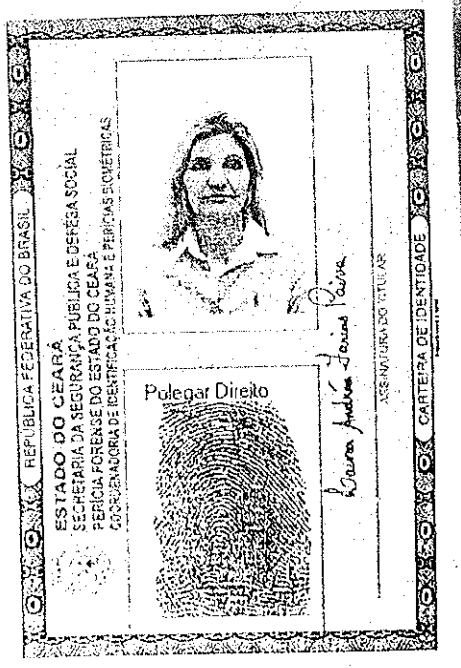 REPÚBLICA FEDERATIVA DO BRASIL
ESTADO DO CEARÁ
SECRETARIA DA SEGURANÇA PÚBLICA E DEFESA SOCIAL
PERÍCIA FORENSE DO ESTADO DO CEARÁ
COORDENADORIA DE IDENTIFICAÇÃO HUMANA E PERÍCIAS BIOMÉTRICAS
Polegar Direito
Andréa Farias Paiva
ASSINATURA DO TITULAR
CARTEIRA DE IDENTIDADE